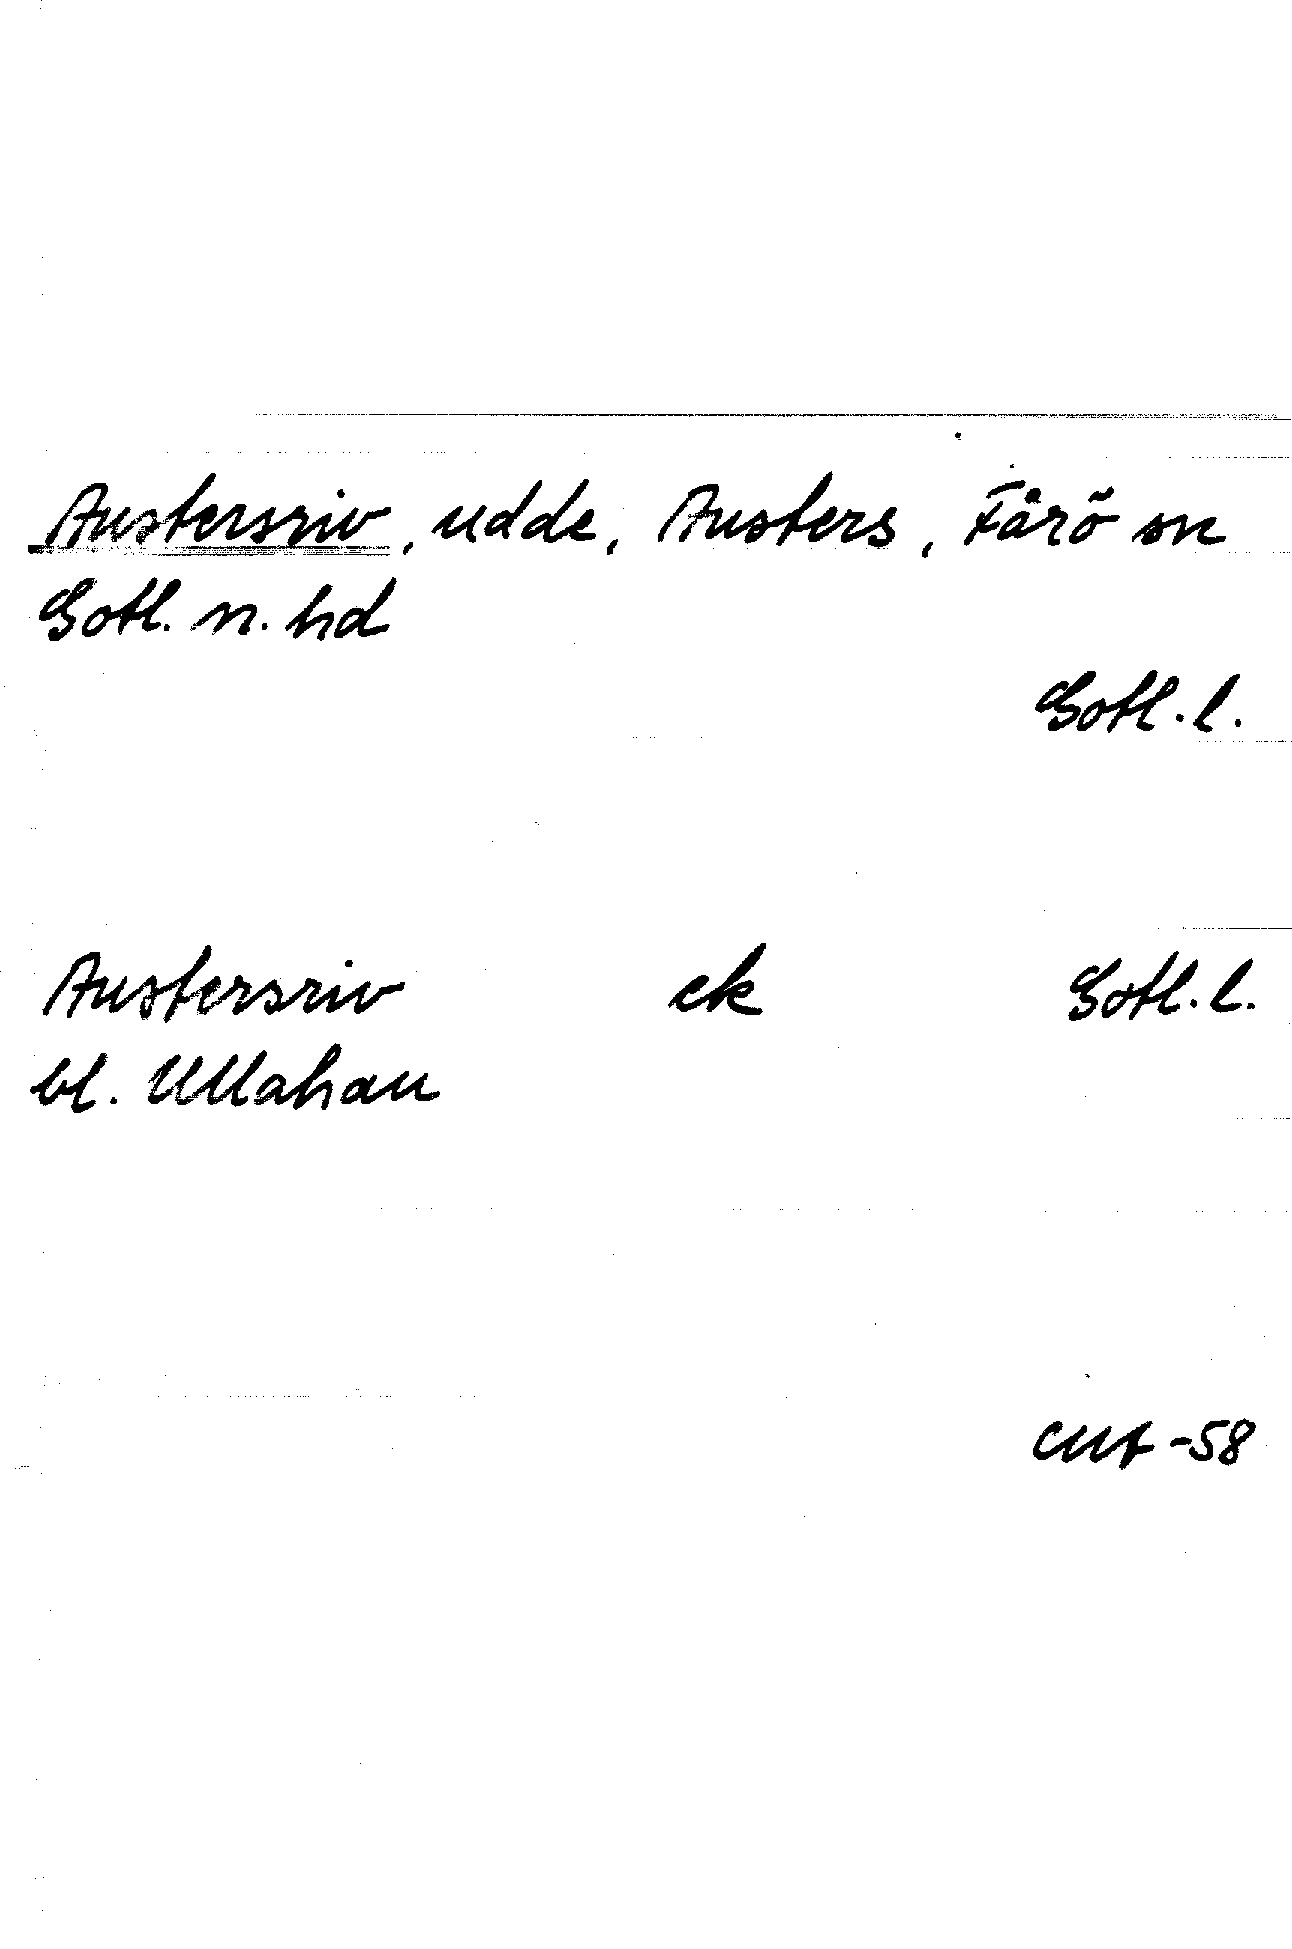 Austersriv, udde, Austers, Fårö sn
Gotl. n. hd
Gotl. l.
Austersriv ek Gotl. l.
bl. Ullahau
-58